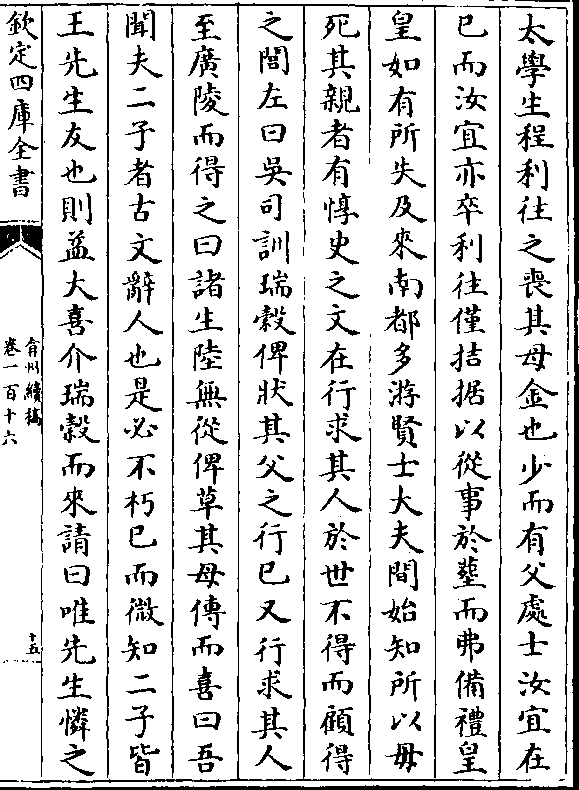 太學生程利往之喪其母金也少而有父處士汝宜在
已而汝宜亦卒利往僅拮据以從事於塟而弗備禮皇
皇如有所失及來南都多游賢士大夫間始知所以毋
死其親者有惇史之文在行求其人於世不得而顧得
之閭左曰吳司訓瑞穀俾狀其父之行已又行求其人
至廣陵而得之曰諸生陸無從俾草其母傳而喜曰吾
聞夫二子者古文辭人也是必不朽已而微知二子皆
王先生友也則益大喜介瑞穀而來請曰唯先生憐之
欽定四庫全書
弇州續稿
卷一百十六
十五